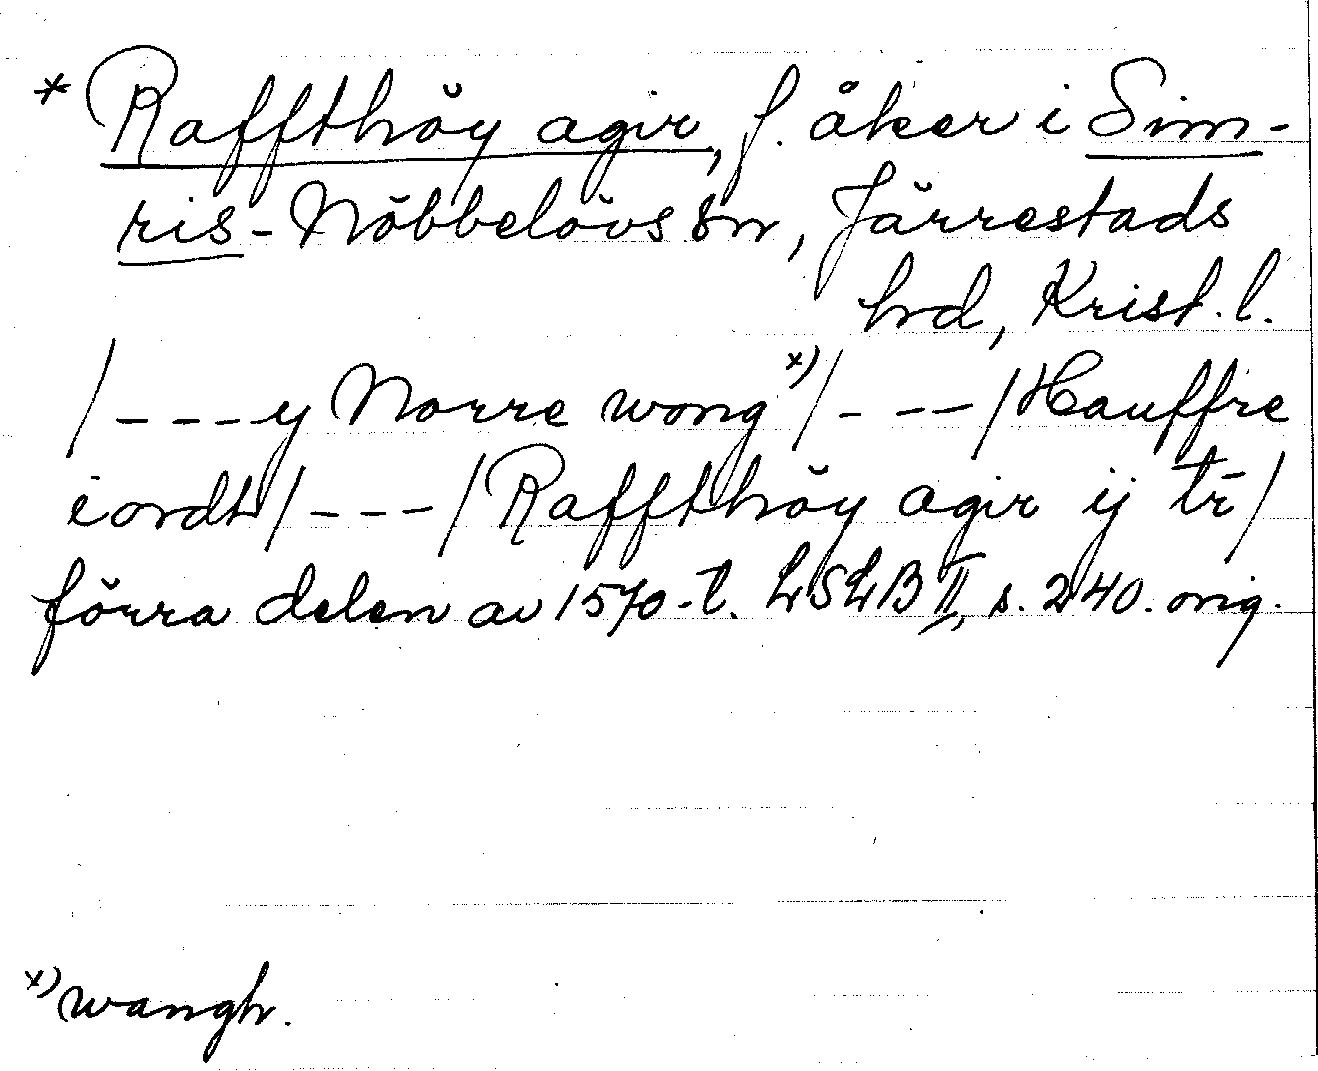 * Raffthöy agir, f. åker i Sim-
ris-Nöbbelövs sn, Järrestads
hrd, Krist. l.
/---y Norre wong x)/---/Hauffre
iordt/---/Raffthöy agir ij tr̄/
förra delen av 1570-t. LSLB II, s. 240. orig.
x) wangh.